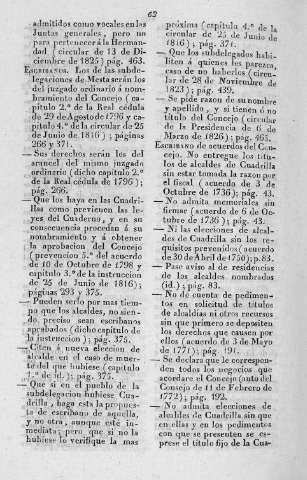 62
admitidos como vocales en las
Juntas generales, pero no
para pertenecer á la Herman-
dad (circular de 13 de Di-
ciembre de 1825) pág. 463.
ESCRIBANOS. Los de las subde-
legaciones de Mesta serán los
del juzgado ordinario á nom-
bramiento del Concejo (ca-
pítulo 2.º de la Real cédula
de 29 de Agosto de 1796 y ca-
pítulo 4.º de la circular de 25
de Junio de 1816); páginas
266 y 371.
— Sus derechos serán los del
arancel del mismo juzgado
ordinario (dicho capítulo 2.º
de la Real cédula de 1796);
pág. 266.
— Que los haya en las Cuadri-
llas como previenen las le-
yes del Cuaderno, y en su
consecuencia procedan á su
nombramiento y á obtener
la aprobacion del Concejo
(prevencion 5.ª del acuerdo
de 10 de Octubre de 1798 y
capítulo 3.º de la instruccion
de 25 de Junio de 1816);
páginas 293 y 375.
— Pueden serlo por mas tiem-
po que los alcaldes, no sien-
do preciso sean escribanos
aprobados (dicho capítulo de
la instruccion); pág. 375.
— Citen á nueva eleccion de
alcalde en el caso de muer-
te del que hubiese (capítulo
7.º de id.); pág. 375.
— Que si en el pueblo de la
subdelegacion hubiese Cua-
drilla, haga esta la propues-
ta de escribano de aquella,
y no otra, aunque esté in-
mediata; pero que si no la
hubiese lo verifique la mas
próxima (capítulo 4.º de la
circular de 25 de Junio de
1816); pág. 371.
— Que los subdelegados habi-
liten á quienes les parezca,
caso de no haberlos (circu-
lar de 28 de Noviembre de
1823); pág. 439.
— Se pide razon de su nombre
y apellido, y si tienen ó no
título del Concejo (circular
de la Presidencia de 6 de
Marzo de 1826); pág. 465.
ESCRIBANO de acuerdos del Con-
cejo. No entregue los títu-
los de alcaldes de Cuadrilla
sin estar tomada la razon por
el fiscal (acuerdo de 3 de
Octubre de 1736); pág. 43.
— No admita memoriales sin
firmar (acuerdo de 6 de Oc-
tubre de 1736); pág. 43.
— Ni las elecciones de alcal-
des de Cuadrilla sin los re-
quisitos prevenidos (acuerdo
de 30 de Abril de 1750); p. 83.
— Pase aviso al de residencias
de los alcaldes nombrados
(id.); pág. 83.
— No dé cuenta de pedimen-
tos en solicitud de títulos
de alcaldías ni otros recursos
sin que primero se depositen
los derechos que causen por
ellos (acuerdo de 3 de Mayo
de 1771); pág. 191.
— Se declara que le correspon-
den todos los negocios que
acordare el Concejo (auto del
Concejo de 11 de Febrero de
1772); pág. 192.
— No admita elecciones de
alcaldes de Cuadrilla sin que
en ellas y en los pedimentos
con que se presenten se es-
prese el título fijo de la Cua-